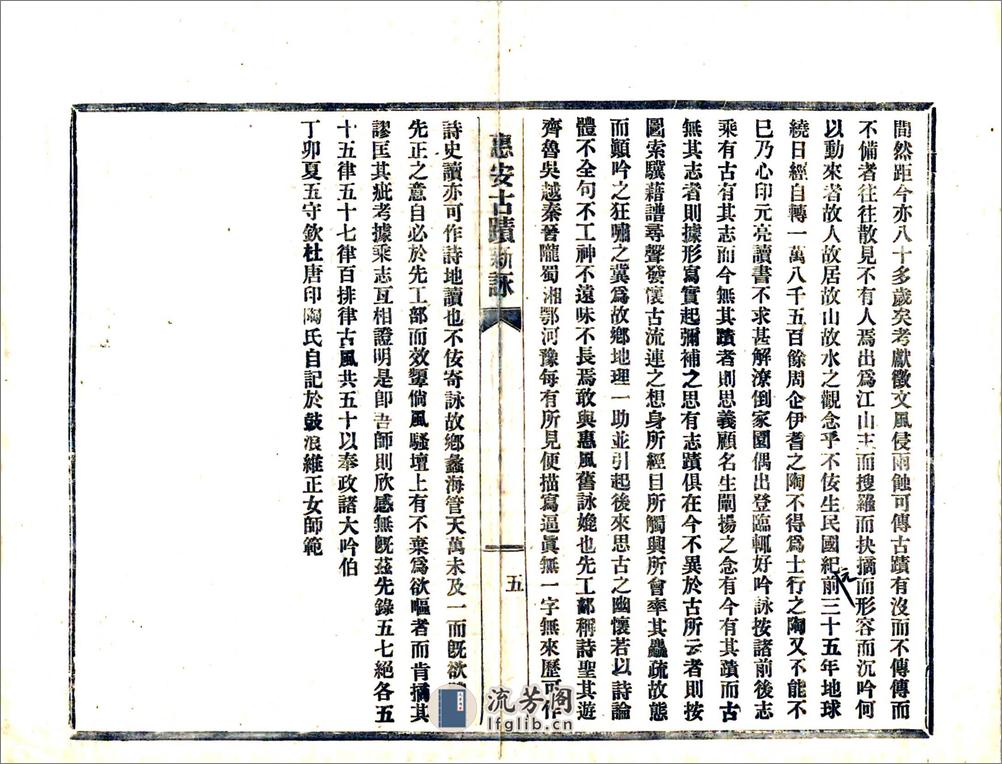 間然距今亦八十多歲矣考獻徵文風侵雨蝕可傳古蹟有沒而不傳傳而
不備者往往散見不有人焉出爲江山主而搜羅而抉摘而形容而沉吟何
以動來者故人故居故山故水之觀念乎不侫生民國紀元前三十五年地球
繞日經自轉一萬八千五百餘周企伊耆之陶不得爲士行之陶又不能不
巳乃心印元亮讀書不求甚解潦倒家園偶出登臨輒好吟詠按諸前後志
乘有古有其志而今無其蹟者則思義顧名生闡揚之念有今有其蹟而古
無其志者則據形寫實起彌補之思有志蹟俱在今不異於古所云者則按
圖索驥藉譜尋聲發懷古流連之想身所經目所觸興所會率其麤疏故態
而顚吟之狂嘯之冀爲故鄉地理一助並引起後來思古之幽懷若以詩論
體不全句不工神不遠味不長焉敢與惠風舊詠媲也先工部稱詩聖其遊
齊魯吳越秦晉隴蜀湘鄂河豫每有所見便描寫逼眞無一字無來歷可作
惠安古蹟新詠
五
詩史讀亦可作詩地讀也不侫寄詠故鄉蠡海管天萬未及一而旣欲
先正之意自必於先工部而效顰倘風騷壇上有不棄爲欲嘔者而肯摘其
謬匡其疵考據乘志互相證明是卽吾師則欣感無旣茲先錄五七絕各五
十五律五十七律百排律古風共五十以奉政諸大吟伯
丁卯夏五守欽杜唐印陶氏自記於鼓浪維正女師範
流芳阁
lfglib.cn